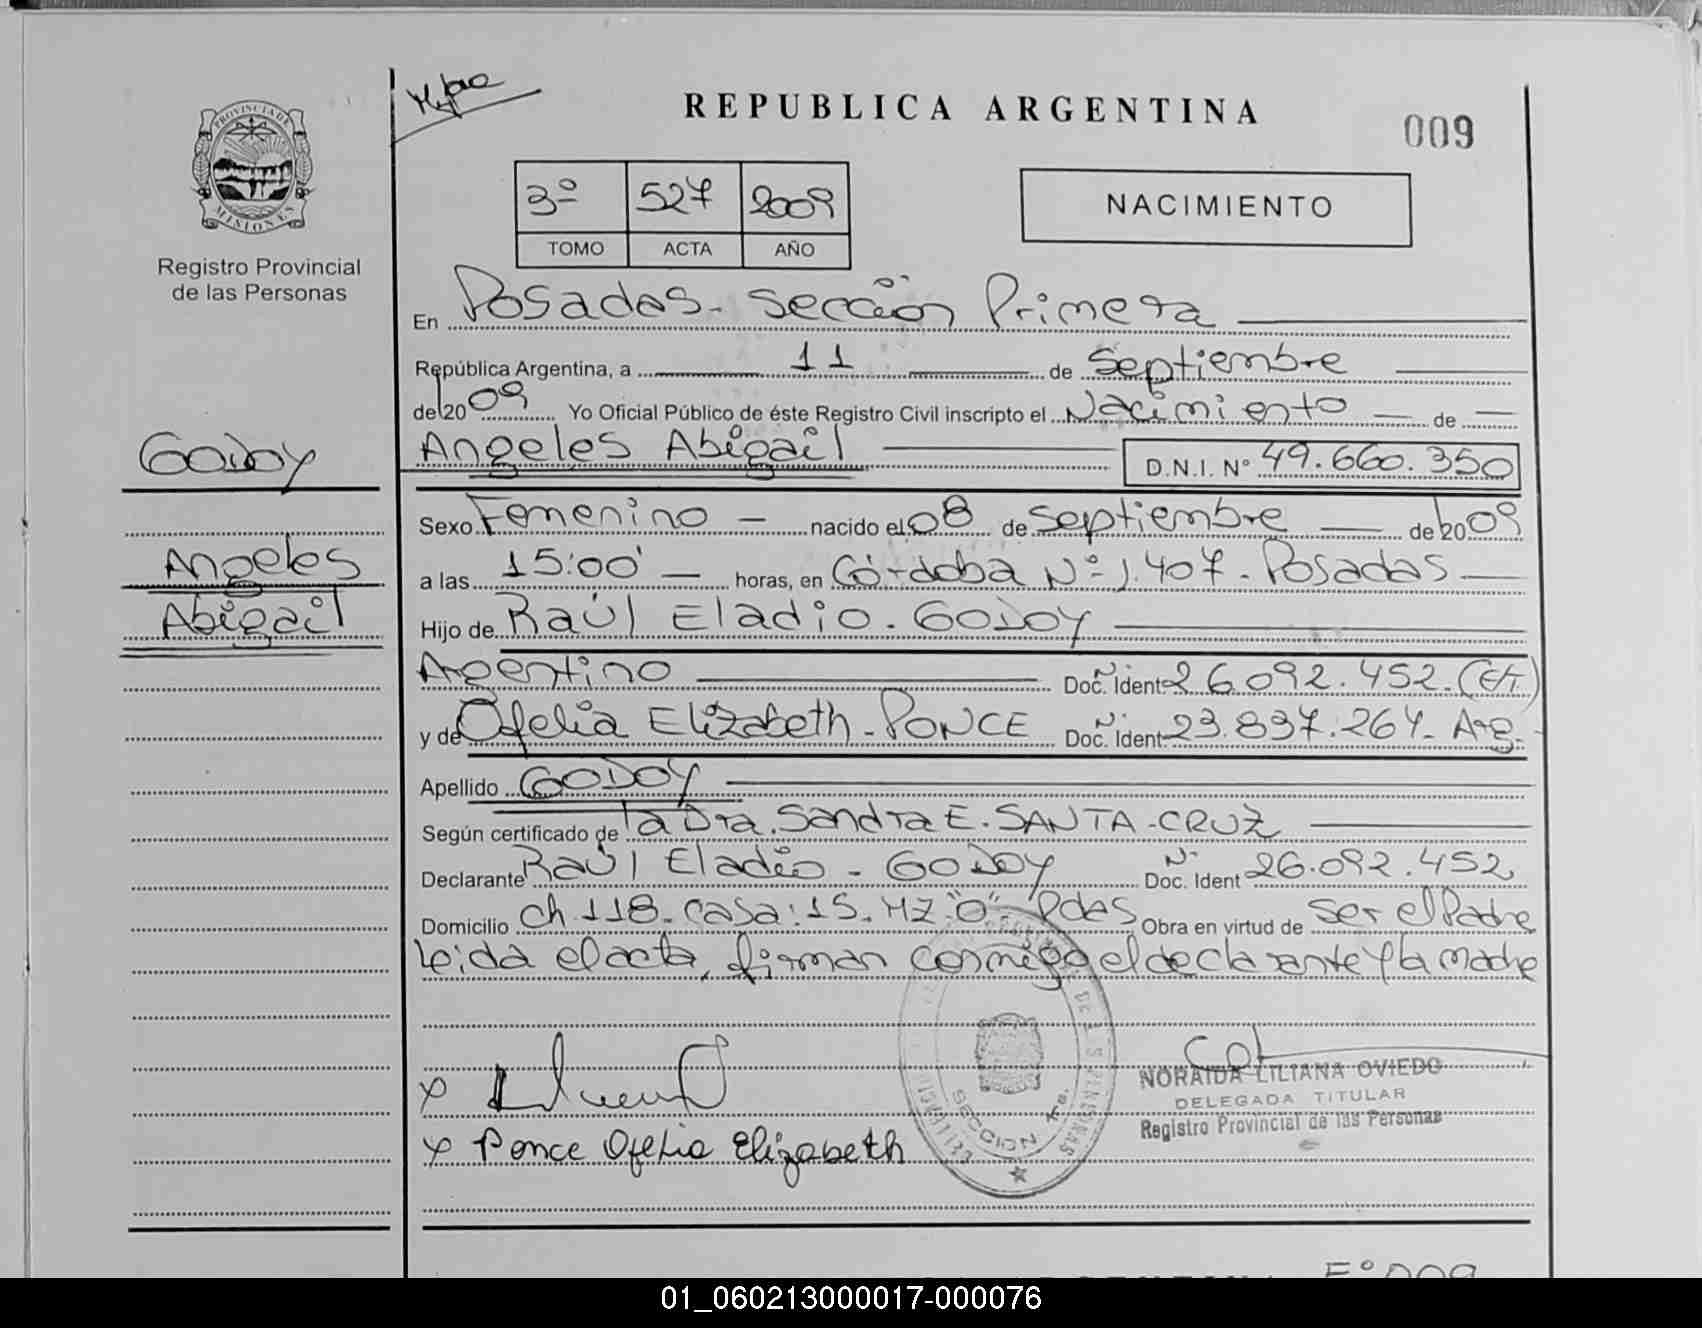 REPUBLICA ARGENTINA
009
PROVINCIA DE
MISIONES
Registro Provincial
de las Personas
3º 527 2009
TOMO ACTA AÑO
NACIMIENTO
En Posadas - Sección Primera
República Argentina, a 11 de Septiembre
de 2009 Yo Oficial Público de éste Registro Civil inscripto el Nacimiento de
Angeles Abigail D.N.I. Nº 49.660.350
GODOY
Angeles
Abigail
Sexo Femenino nacido el 08 de Septiembre de 2009
a las 15:00' horas, en Córdoba Nº 1.407 - Posadas
Hijo de Raúl Eladio - GODOY
Argentino Nº Doc. Ident 26.092.452 (Et.)
y de Ofelia Elizabeth - PONCE Nº Doc. Ident 23.837.267 - Arg.
Apellido GODOY
Según certificado de la Dra. Sandra E. SANTA-CRUZ
Declarante Raúl Eladio - GODOY Nº Doc. Ident 26.092.452
Domicilio Ch. 118 - Casa: 15. MZ "O" - Pdas Obra en virtud de Ser el Padre
leida el acta, firman conmigo el declarante y la madre
x
x Ponce Ofelia Elizabeth
SECCION 1ra.
DE LAS PERSONAS
NORAIDA LILIANA OVIEDO
DELEGADA TITULAR
Registro Provincial de las Personas
Fº 009
01_060213000017-000076